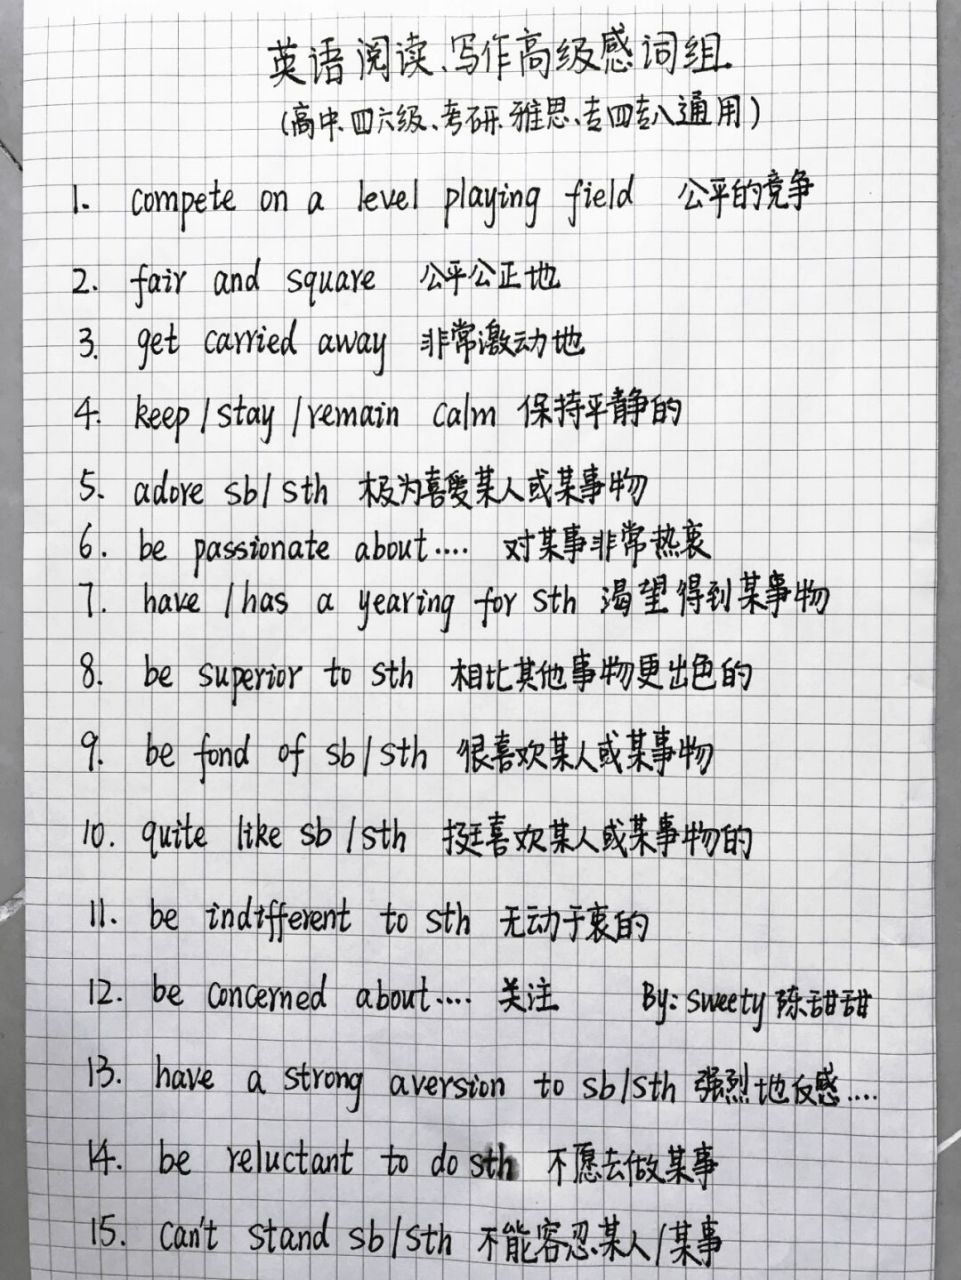 英语阅读、写作高级感词组.
(高中、四六级、考研、雅思、专四专八通用)
1. compete on a level playing field 公平的竞争
2. fair and square 公平公正地
3. get carried away 非常激动地
4. keep / stay / remain calm 保持平静的
5. adore sb / sth 极为喜爱某人或某事物
6. be passionate about.... 对某事非常热衷
7. have / has a yearing for sth 渴望得到某事物
8. be superior to sth 相比其他事物更出色的
9. be fond of sb / sth 很喜欢某人或某事物
10. quite like sb / sth 挺喜欢某人或某事物的
11. be indifferent to sth 无动于衷的
12. be concerned about.... 关注 By: sweety 陈甜甜
13. have a strong aversion to sb/sth 强烈地反感....
14. be reluctant to do sth 不愿去做某事
15. can't stand sb/sth 不能容忍某人/某事